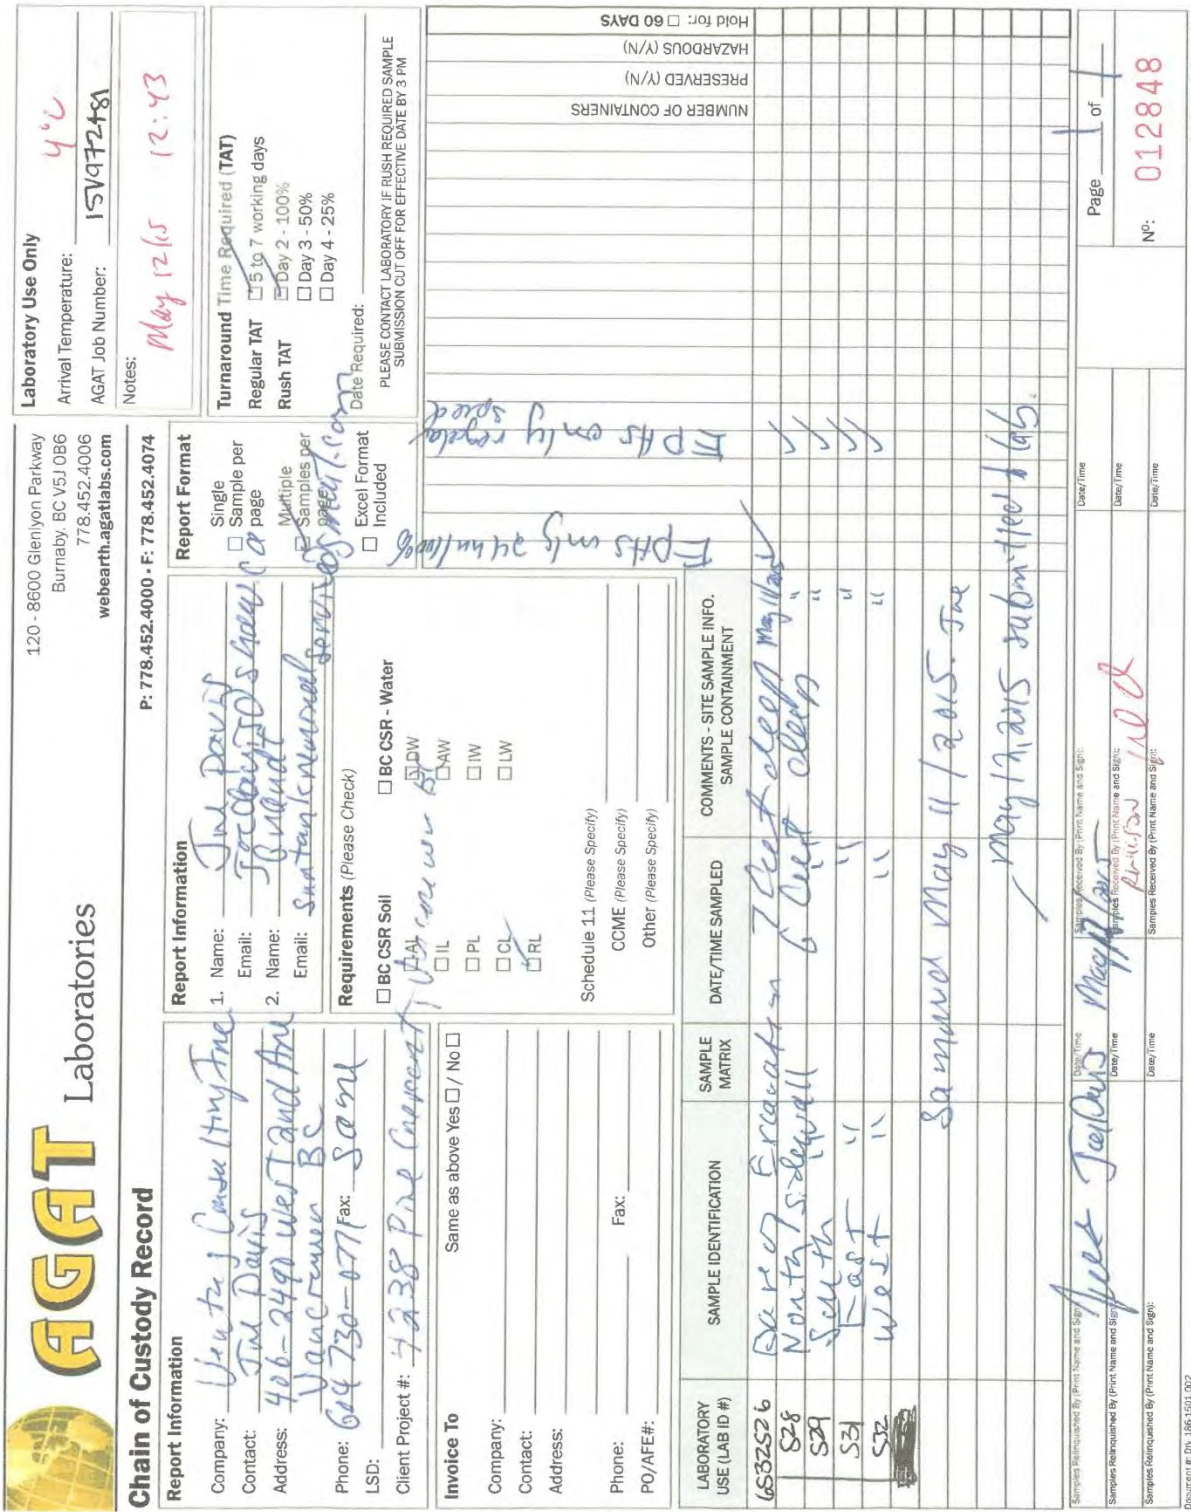 AGAT Laboratories
120 - 8600 Glenlyon Parkway
Burnaby, BC V5J 0B6
778.452.4006
webearth.agatlabs.com
P: 778.452.4000 · F: 778.452.4074
Laboratory Use Only
Arrival Temperature: 4°C
AGAT Job Number: 15V972481
Notes:
May 12/15 12:43
Chain of Custody Record
Report Information
Company: Consulting Inc
Contact: Davis
Address: 406-2490 West 2nd Ave
Vancouver BC
Phone: 604 730-0771 Fax: same
LSD:
Client Project #: 4238 Pine Crescent, Vancouver BC
Report Information
1. Name: Davis
Email:
2. Name:
Email: services
Requirements (Please Check)
☐ BC CSR Soil
☐ AL
☐ IL
☐ PL
☐ CL
☐ RL
☐ BC CSR - Water
☐ DW
☐ AW
☐ IW
☐ LW
Schedule 11 (Please Specify)
CCME (Please Specify)
Other (Please Specify)
Report Format
☐ Single Sample per page
☐ Multiple Samples per page
☐ Excel Format Included
Turnaround Time Required (TAT)
Regular TAT ☐ 5 to 7 working days
Rush TAT ☐ Day 2 - 100%
☐ Day 3 - 50%
☐ Day 4 - 25%
Date Required:
PLEASE CONTACT LABORATORY IF RUSH REQUIRED SAMPLE
SUBMISSION CUT OFF FOR EFFECTIVE DATE BY 3 PM
Invoice To
Same as above Yes ☐ / No ☐
Company:
Contact:
Address:
Phone: Fax:
PO/AFE#:
LABORATORY USE (LAB ID #)
SAMPLE IDENTIFICATION
SAMPLE MATRIX
DATE/TIME SAMPLED
COMMENTS - SITE SAMPLE INFO. SAMPLE CONTAINMENT
EPHs only 24 hr/100%
EPHs only regular speed
NUMBER OF CONTAINERS
PRESERVED (Y/N)
HAZARDOUS (Y/N)
Hold for: ☐ 60 DAYS
6532526 Base of Excavation 7 feet deep May 11/2015
528 North Sidewall 6 feet deep "
529 South " " "
531 East " " "
532 West " " "
Sampled May 11/2015.
May 12, 2015 submitted lab.
Samples Relinquished By (Print Name and Sign):
Date/Time
Samples Received By (Print Name and Sign):
Date/Time
Samples Relinquished By (Print Name and Sign):
Date/Time
Samples Received By (Print Name and Sign):
Date/Time
Samples Relinquished By (Print Name and Sign):
Date/Time
Samples Received By (Print Name and Sign):
Date/Time
Page 1 of 1
Nº: 012848
Document #: DIV.186.1501.002